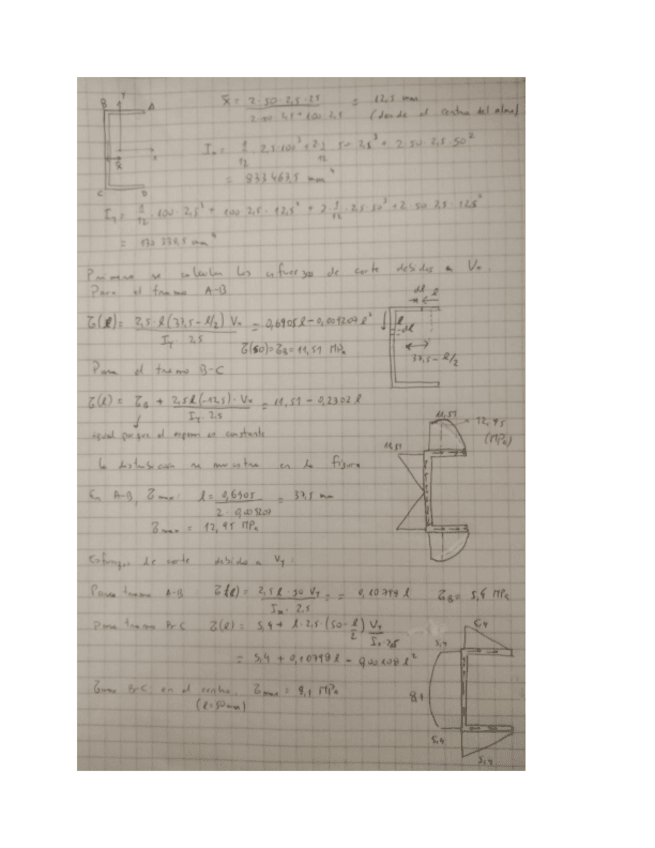 B Y A
x̄ = 2·50·2,5·25 / 2·50·2,5+100·2,5 = 12,5 mm
(desde el centro del alma)
x
x̄
C D
Ix = 1/12 · 2,5·100³ + 2·1/12 · 50·2,5³ + 2·50·2,5·50²
= 833463,5 mm⁴
Iy = 1/12 · 100·2,5³ + 100·2,5·12,5² + 2·1/12·2,5·50³ + 2·50·2,5·12,5²
mm⁴
Primero se calculan los esfuerzos de corte debidos a Vx.
Para el tramo A-B
dl l
τ(l) = 2,5·l(37,5-l/2) Vx / Iy 2,5 = 0,6905l - 0,009207l²
l
dl
τ(50) = τB = 11,51 MPa
37,5-l/2
Para el tramo B-C
τ(l) = τB + 2,5l(-12,5)·Vx / Iy·2,5 = 11,51 - 0,2302l
igual porque el espesor es constante
11,51 12,95
(MPa)
11,51
La distribución se muestra en la figura
En A-B, τmax: l = 0,6905 / 2·0,009207 = 37,5 mm
τmax = 12,95 MPa
Esfuerzos de corte debido a Vy:
Para tramo A-B τ(l) = 2,5l·50 Vy / Ix·2,5 = 0,10798 l τB = 5,4 MPa
Para tramo B-C τ(l) = 5,4 + l·2,5·(50-l/2) Vy / Ix·2,5
5,4
5,4
= 5,4 + 0,10798 l - 0,00108 l²
τmax B-C: en el centro. τmax = 8,1 MPa
(l=50mm)
8,1
5,4
5,4